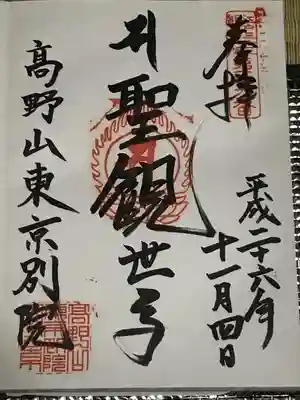 奉拝
平成二十六年
十一月四日
聖観世音
高野山東京別院